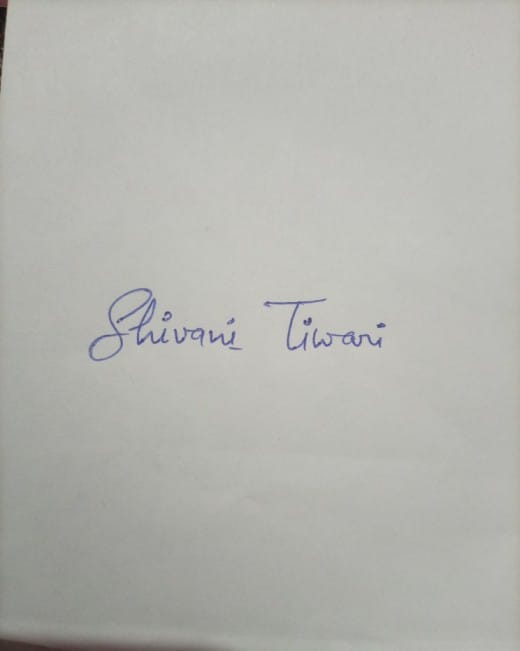 Shivani Tiwari